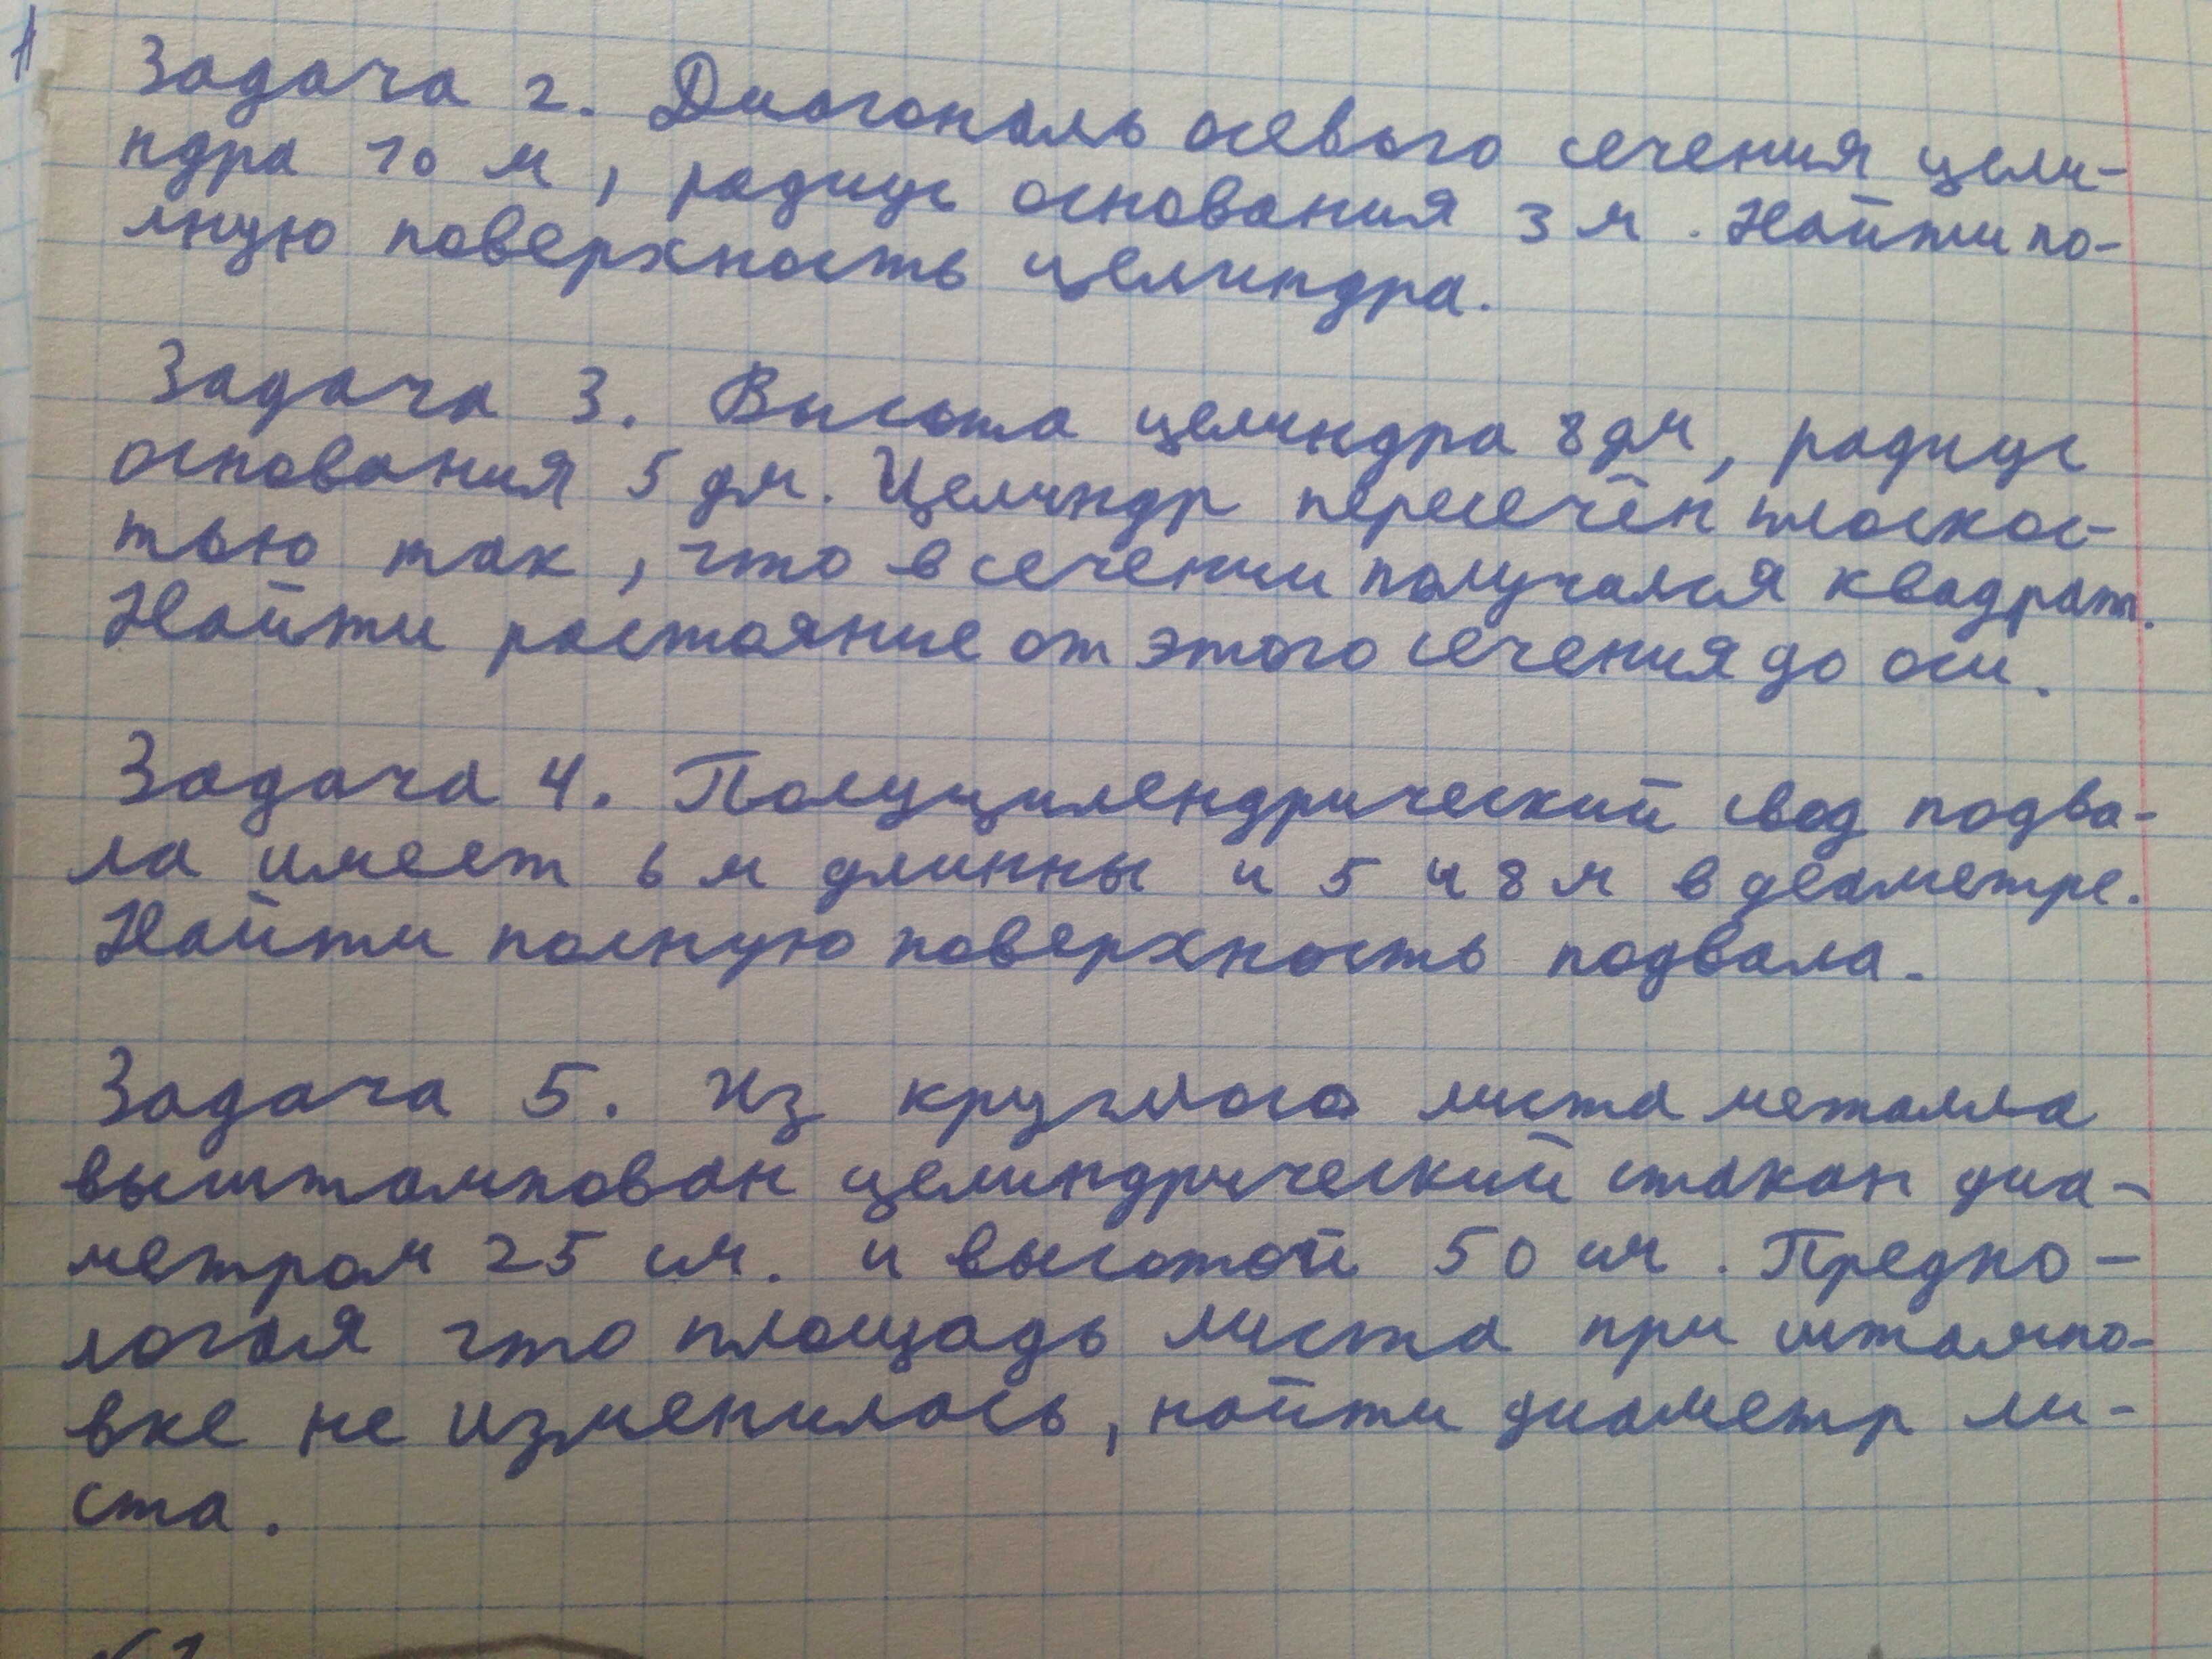 Задача 2. Диогональ осевого сечения цели-
ндра 10 м, радиус основания 3 м. Найти по-
лную поверхность целиндра.
Задача 3. Высота целиндра 8 дм, радиус
основания 5 дм. Целиндр пересечён плоскос-
тью так, что в сечении получался квадрат.
Найти растояние от этого сечения до оси.
Задача 4. Полуцилендрический свод подва-
ла имеет 6 м длинны и 5 ч 8 м в деаметре.
Найти полную поверхность подвала.
Задача 5. Из круглого листа металла
выштампован целиндрический стакан диа-
метром 25 см. и высотой 50 см. Предпо-
логая что площадь листа при штампо-
вке не изменилось, найти диаметр ли-
ста.